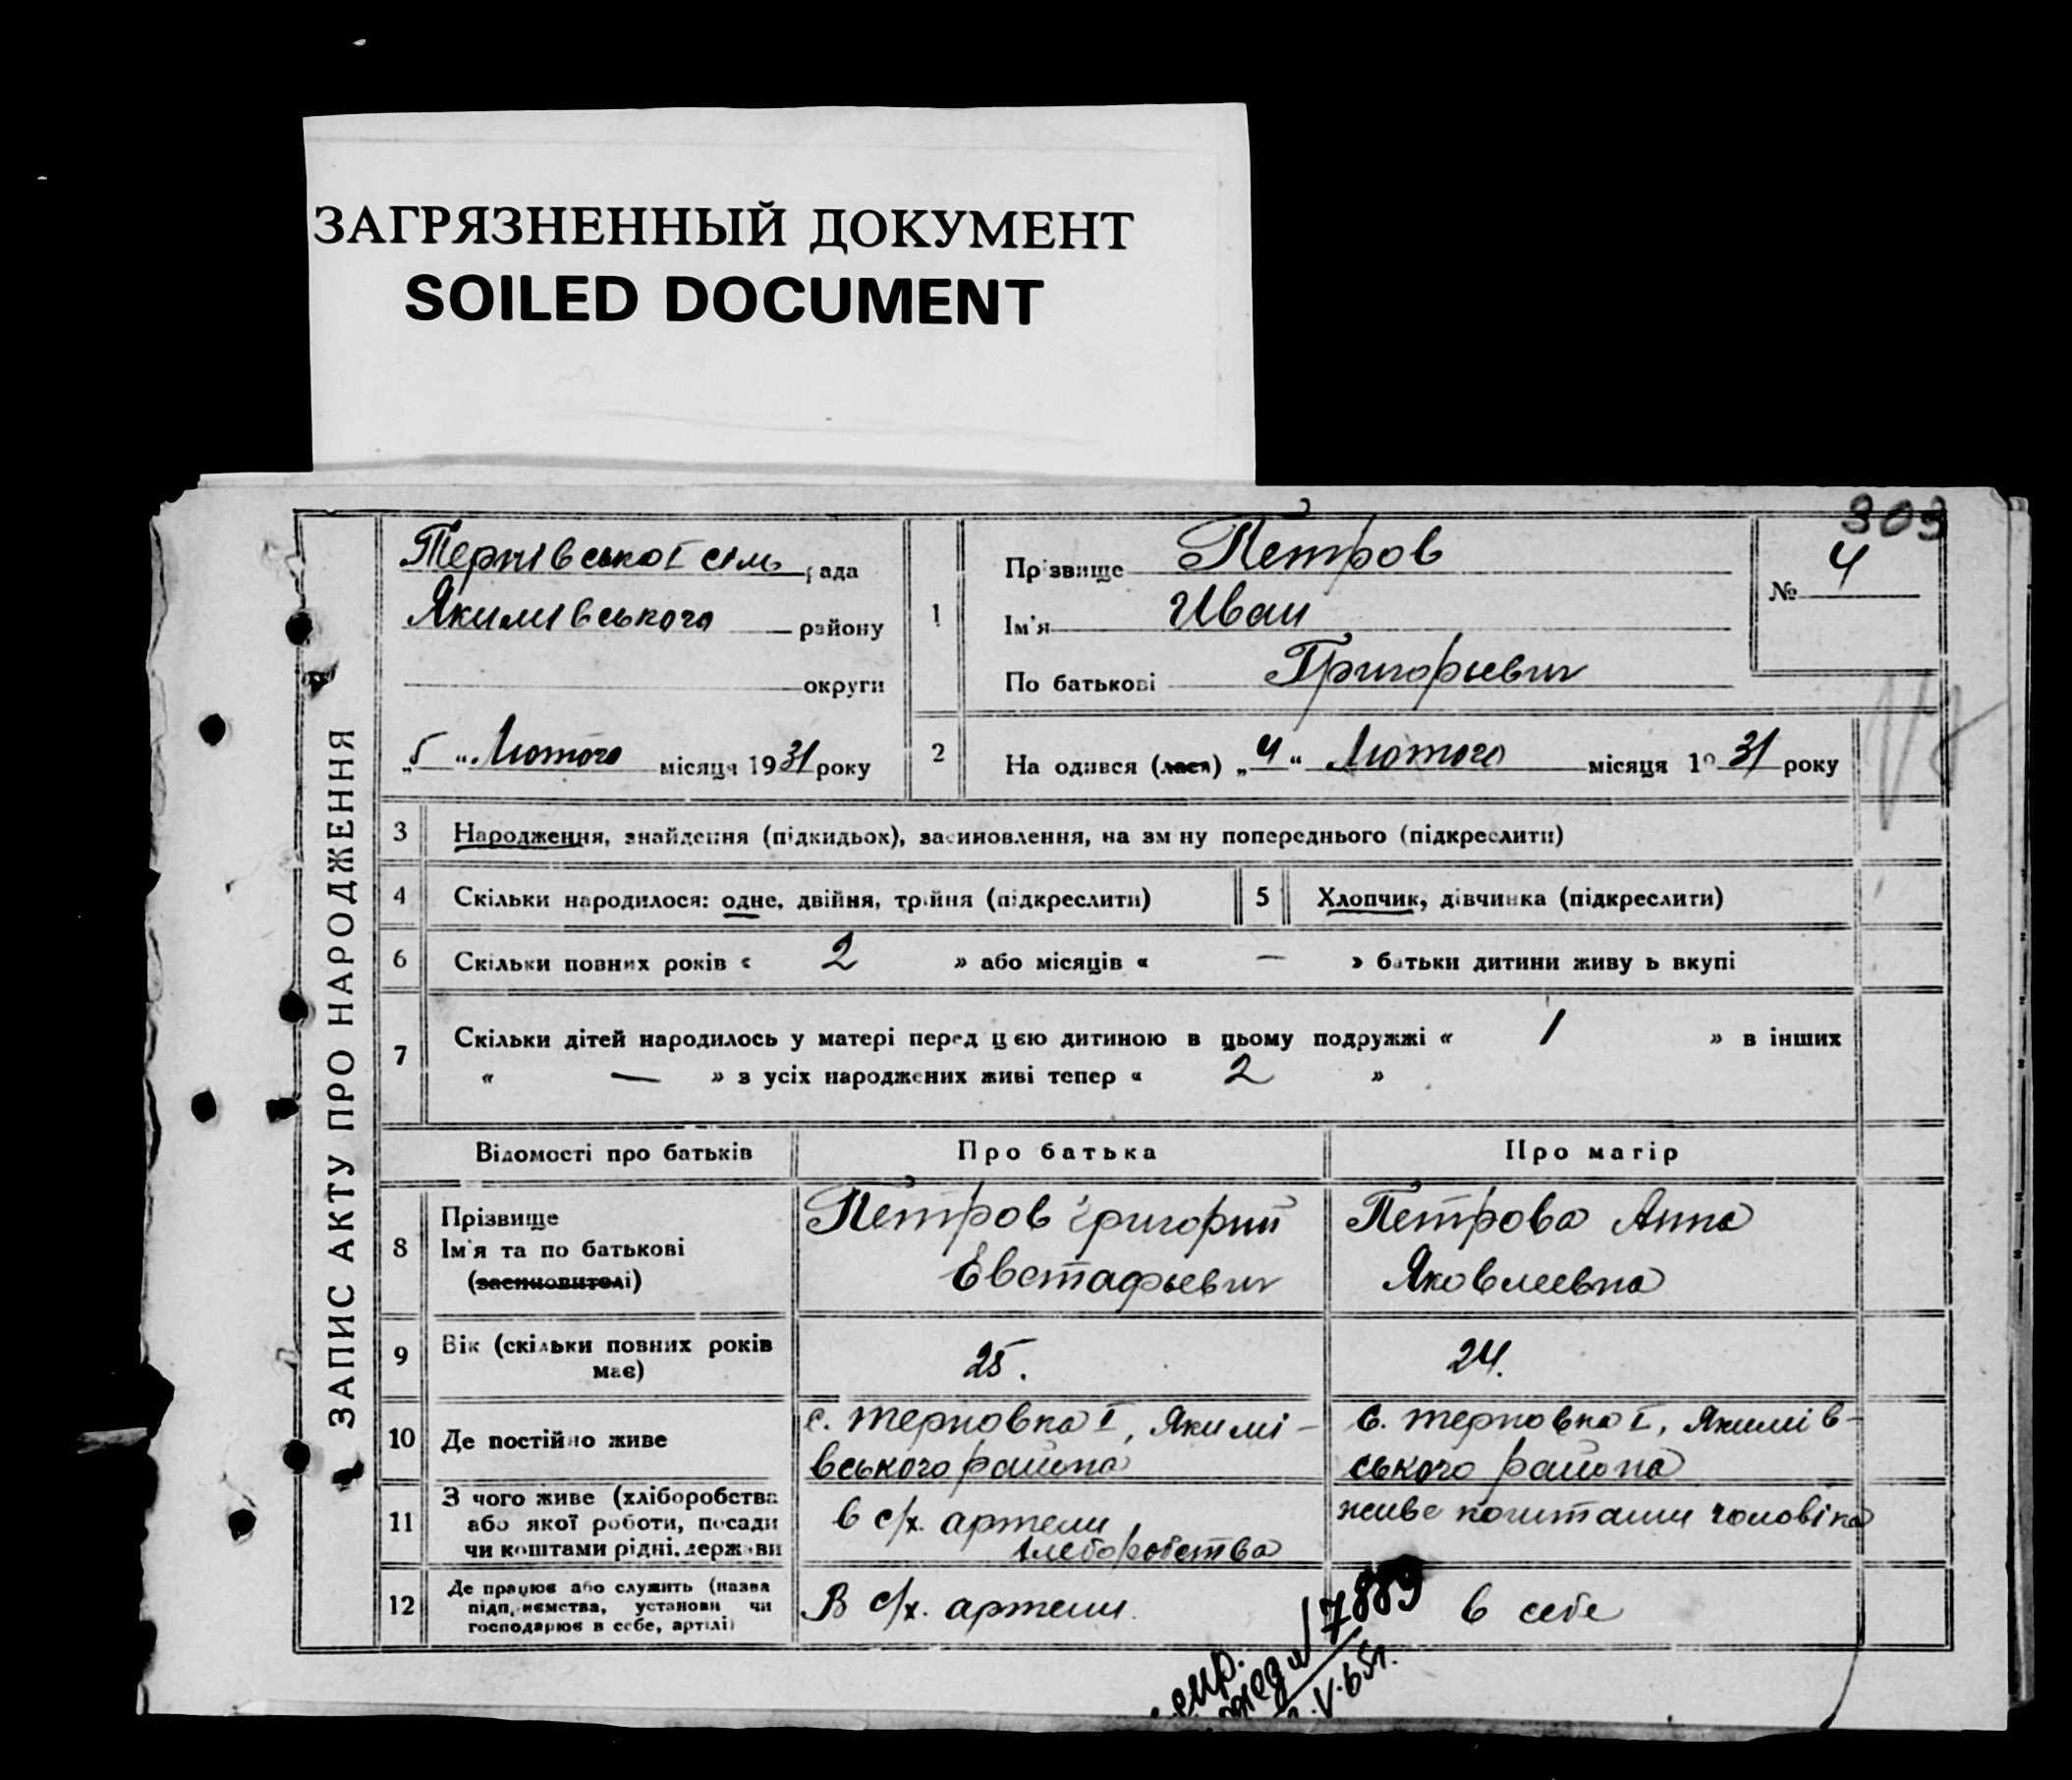 ЗАГРЯЗНЕННЫЙ ДОКУМЕНТ
SOILED DOCUMENT
303
ЗАПИС АКТУ ПРО НАРОДЖЕННЯ
Тернівської сіль рада
Якимівського району
округи
„5“ Лютого місяця 1931 року
1
Прізвище Петров
Ім'я Иван
По батькові Григорьевич
№ 4
2
На одився (лася) „4“ Лютого місяця 19 31 року
3 Народження, знайдення (підкидьох), засиновлення, на зм ну попереднього (підкреслити)
4 Скільки народилося: одне, двійня, трійня (підкреслити)
5 Хлопчик, дівчинка (підкреслити)
6 Скільки повних років « 2 » або місяців « — » батьки дитини живу ь вкупі
7 Скільки дітей народилось у матері перед цією дитиною в цьому подружжі « 1 » в інших
« — » з усіх народжених живі тепер « 2 »
Відомості про батьків Про батька Про матір
8 Прізвище
Ім'я та по батькові
(засиновителі)
Петров Григорий
Евстафьевич
Петрова Анна
Яковлевна
9 Вік (скільки повних років
має)
25.
24.
10 Де постійно живе
с. Терновка I, Якимі-
вського района
с. Терновка I, Якимів-
ського района
11 З чого живе (хліборобства
або якої роботи, посади
чи коштами рідні, держави
в с/х. артели
хлеборобства
живе коштами чоловіка
12 Де працює або служить (назва
підприємства, установи чи
господарює в себе, артілі)
В с/х. артели.
в себе
17889
V.65г.